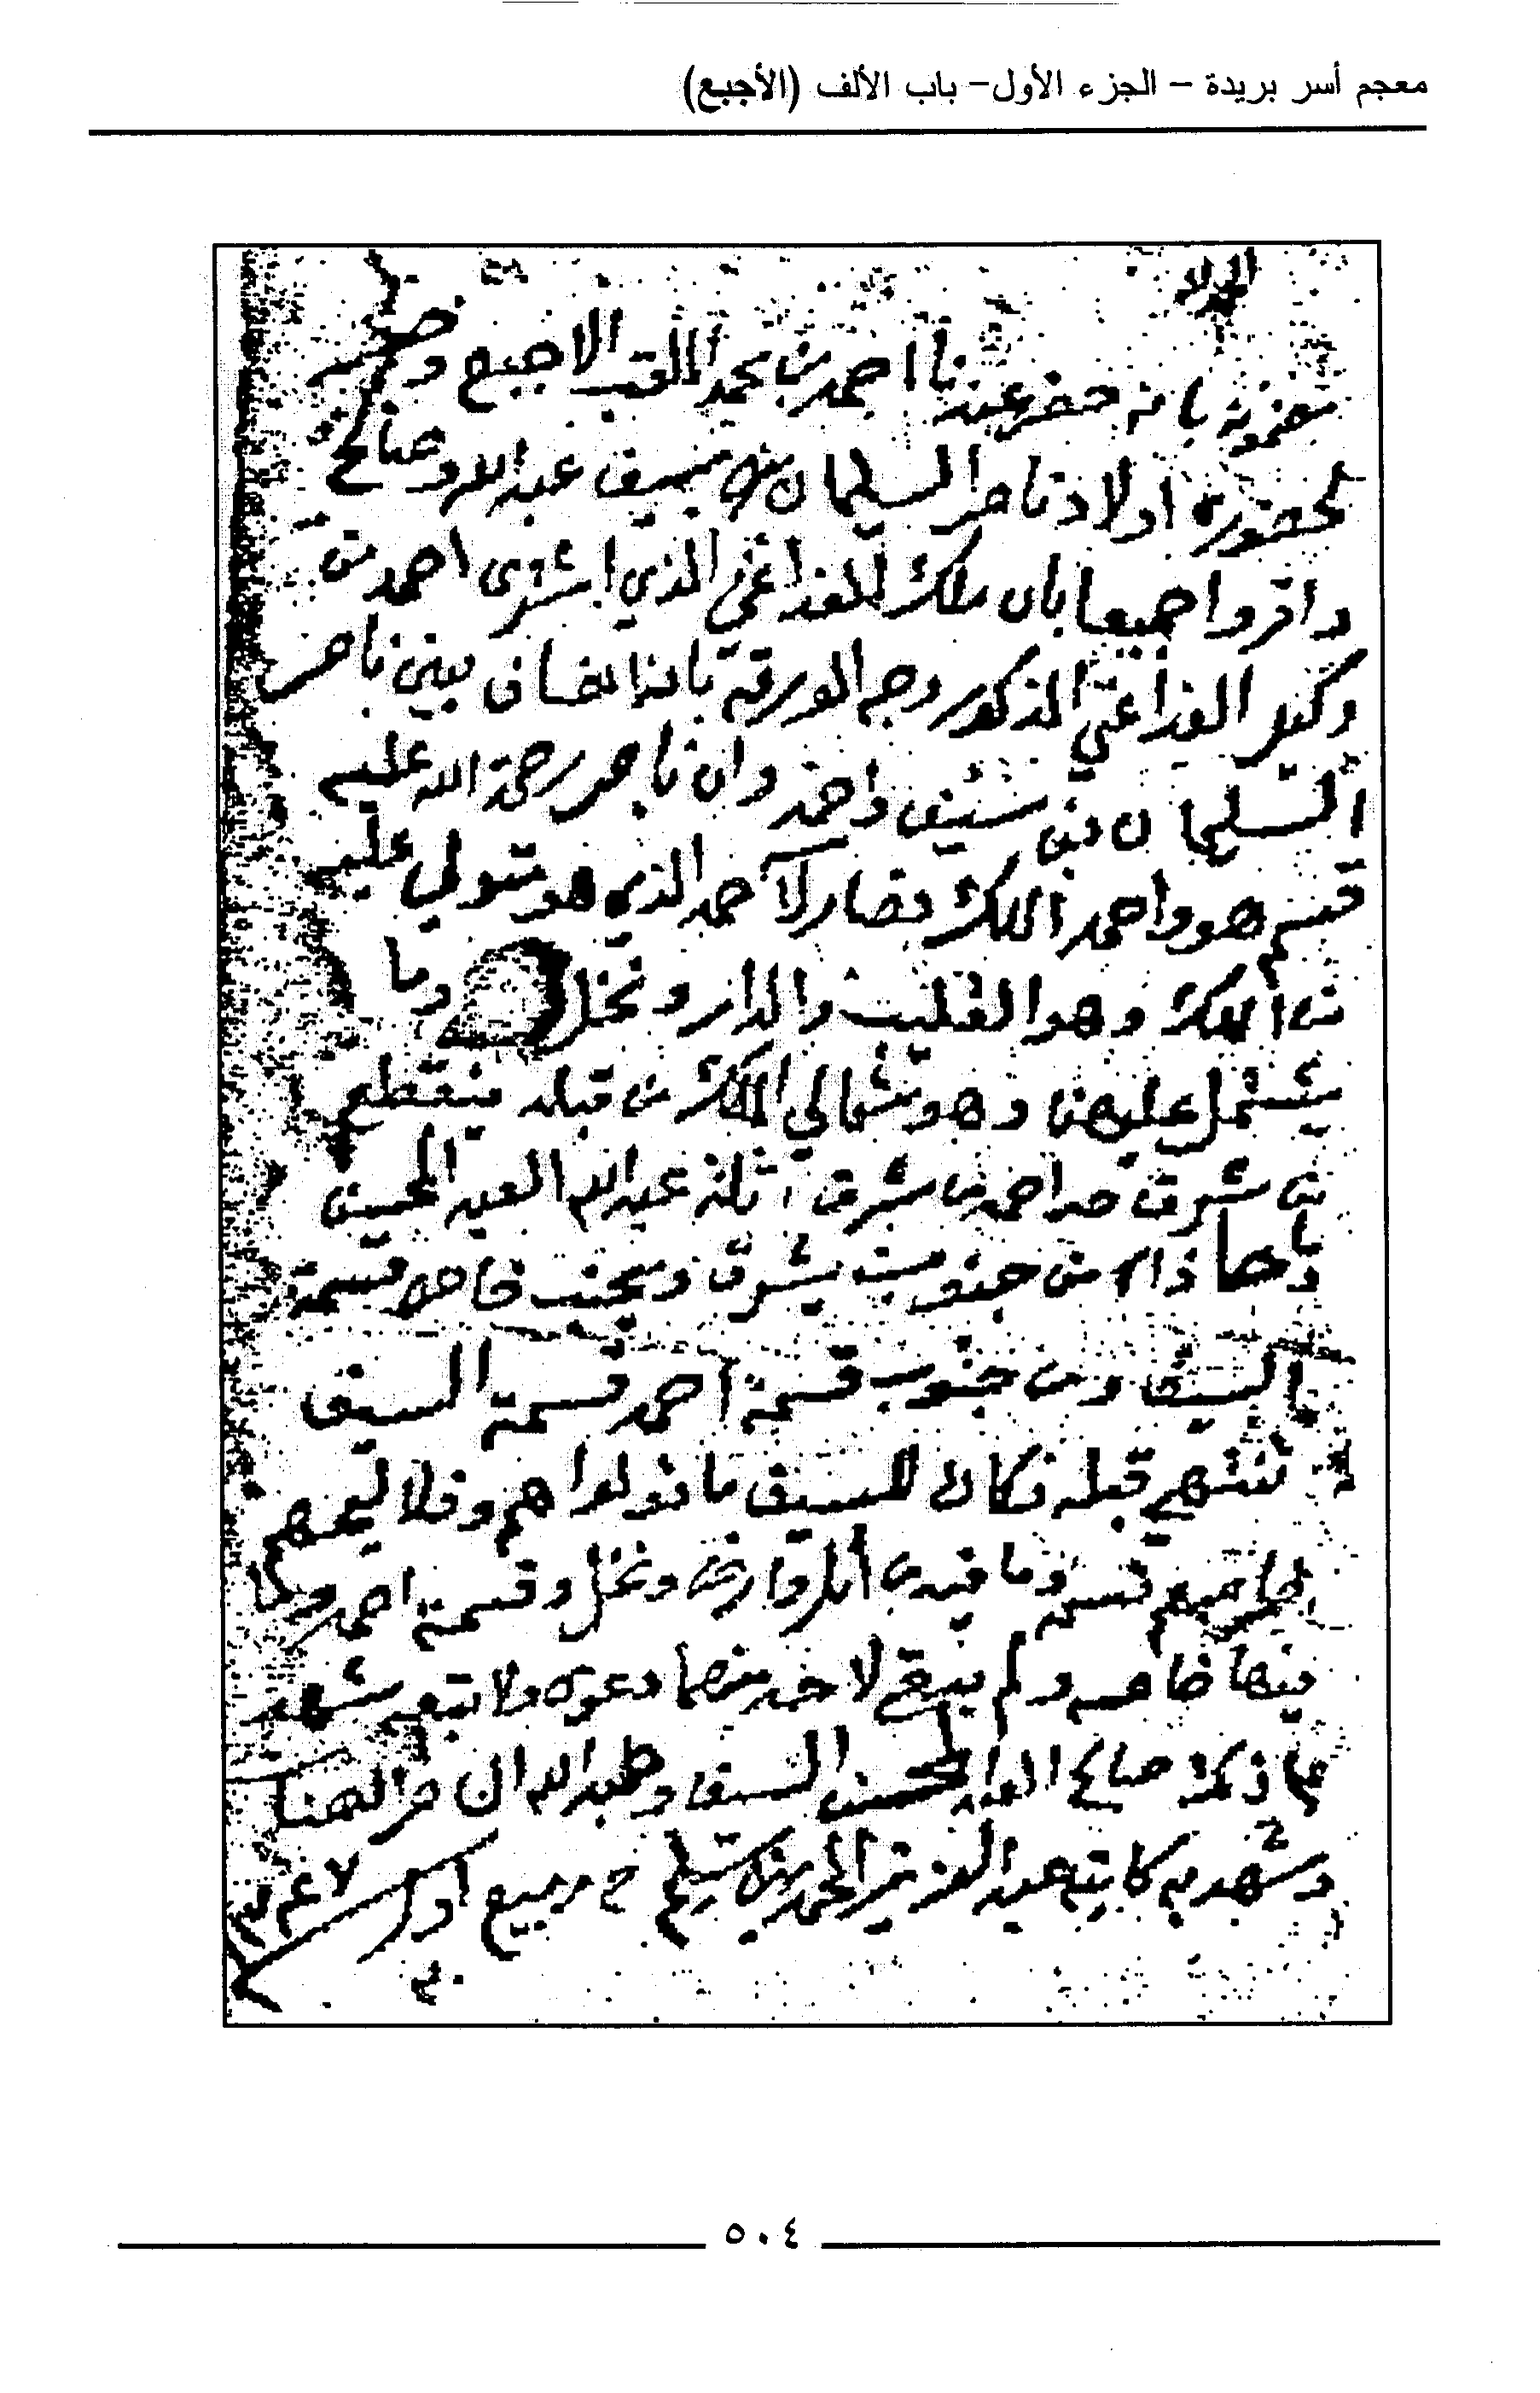 معجم أسر بريدة – الجزء الأول – باب الألف (الأجبع)
الحمد لله
مضمونه بانه حضر عندنا احمد بن محمد الملقب الاجبع وحضر
لحضوره اولاد ناصر السليمان بن سيف عبدالله وصالح
واقروا جميعا بان ملك الفداغي الذي اشترى احمد من
وكيل الفداغي المذكور وجه الورقة بانه انصاف بين ناصر
السليمان بن سيف واحمد وان ناصر رحمة الله عليه
قسم هو واحمد الملك فصار لاحمد الذي هو متولي عليه
من الملك وهو القليب والدار ونخل وما
يشتمل عليهن وهو شمالي الملك من قبله ينقطع
من شرق حد احمد من شرق اثلة عبدالله العبد المحسن
وما حاذاه من جنوب يشرق ويجنب خاص قسمة
السيف ومن جنوب قسمة احمد قسمة السيف
تنتهي قبله فكان للسيف ما تولوا هم وفلاليحهم
جميع قسمهم وما فيه من اثل وارض ونخل وقسمة احمد وما
فيها خاصه ولم يبق لاحد منهما دعوى ولا تبعه شهد
على ذلك صالح العبد المحسن السيف وعبدالله ال
وشهد به كاتبه عبد العزيز الحمد بن سليم ربيع اول
٥٠٤